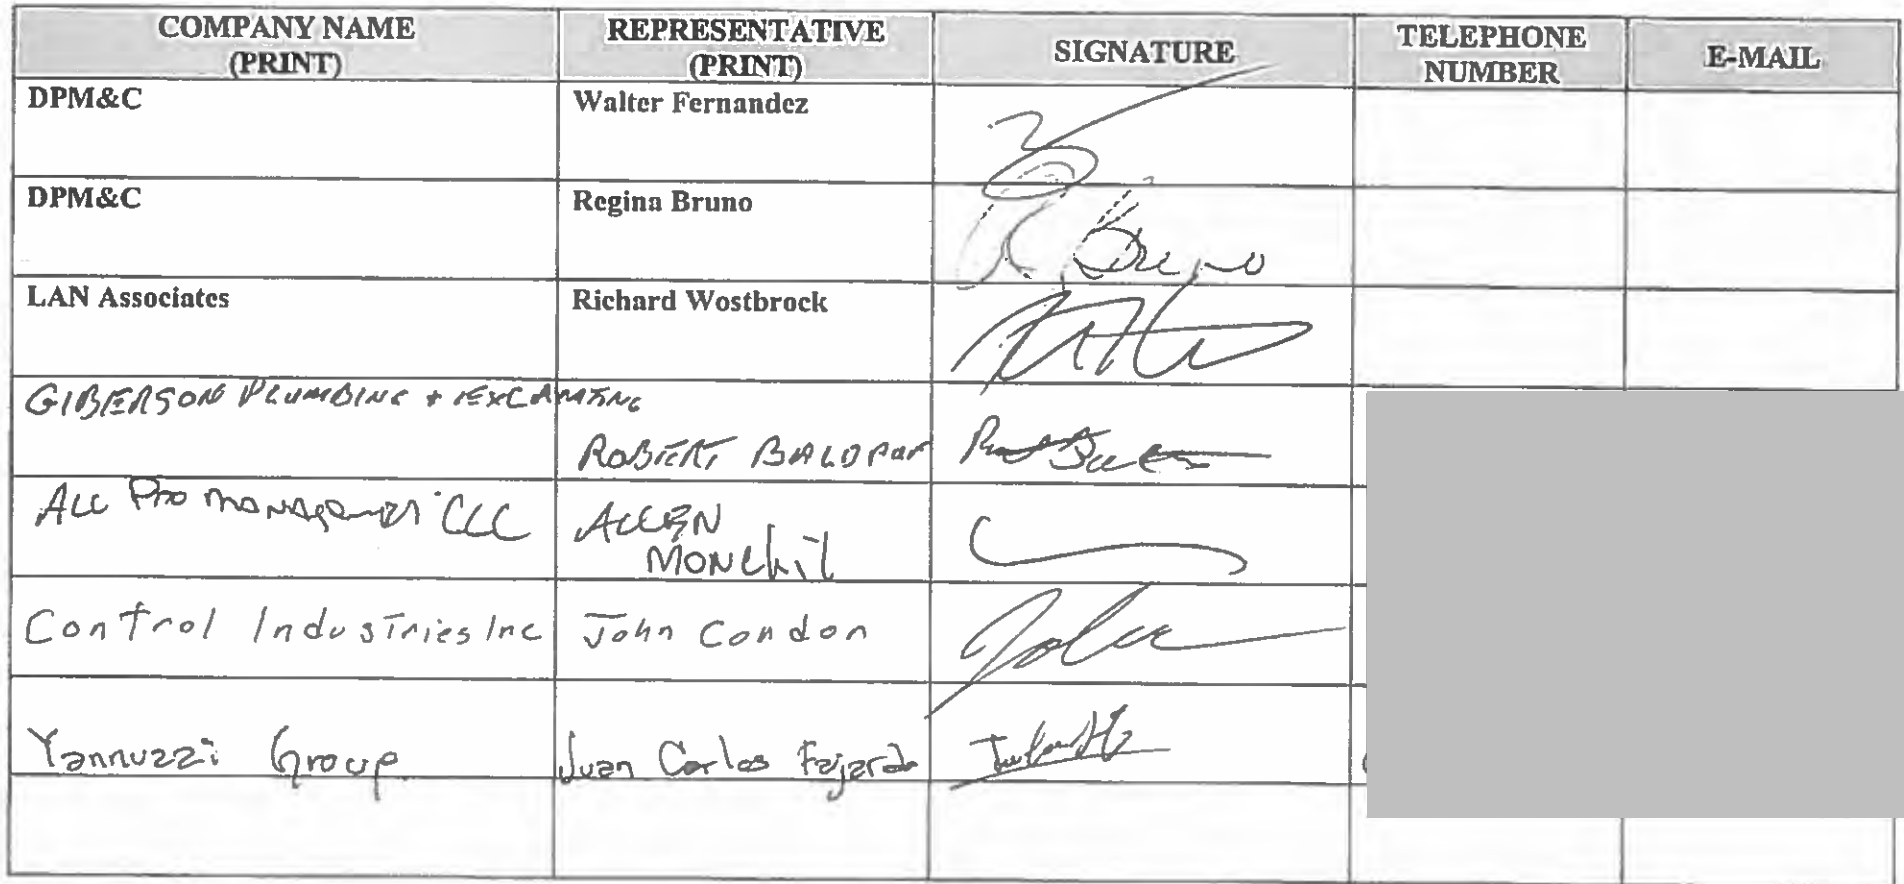 COMPANY NAME
(PRINT)
REPRESENTATIVE
(PRINT)
SIGNATURE
TELEPHONE
NUMBER
E-MAIL
DPM&C
Walter Fernandez
DPM&C
Regina Bruno
R Bruno
LAN Associates
Richard Wostbrock
GIBERSON PLUMBING +
ROBERT
ALL Pro
ALLEN
MONChil
Control Industries Inc
John Condon
Yannuzzi Group
Juan Carlos Fajardo